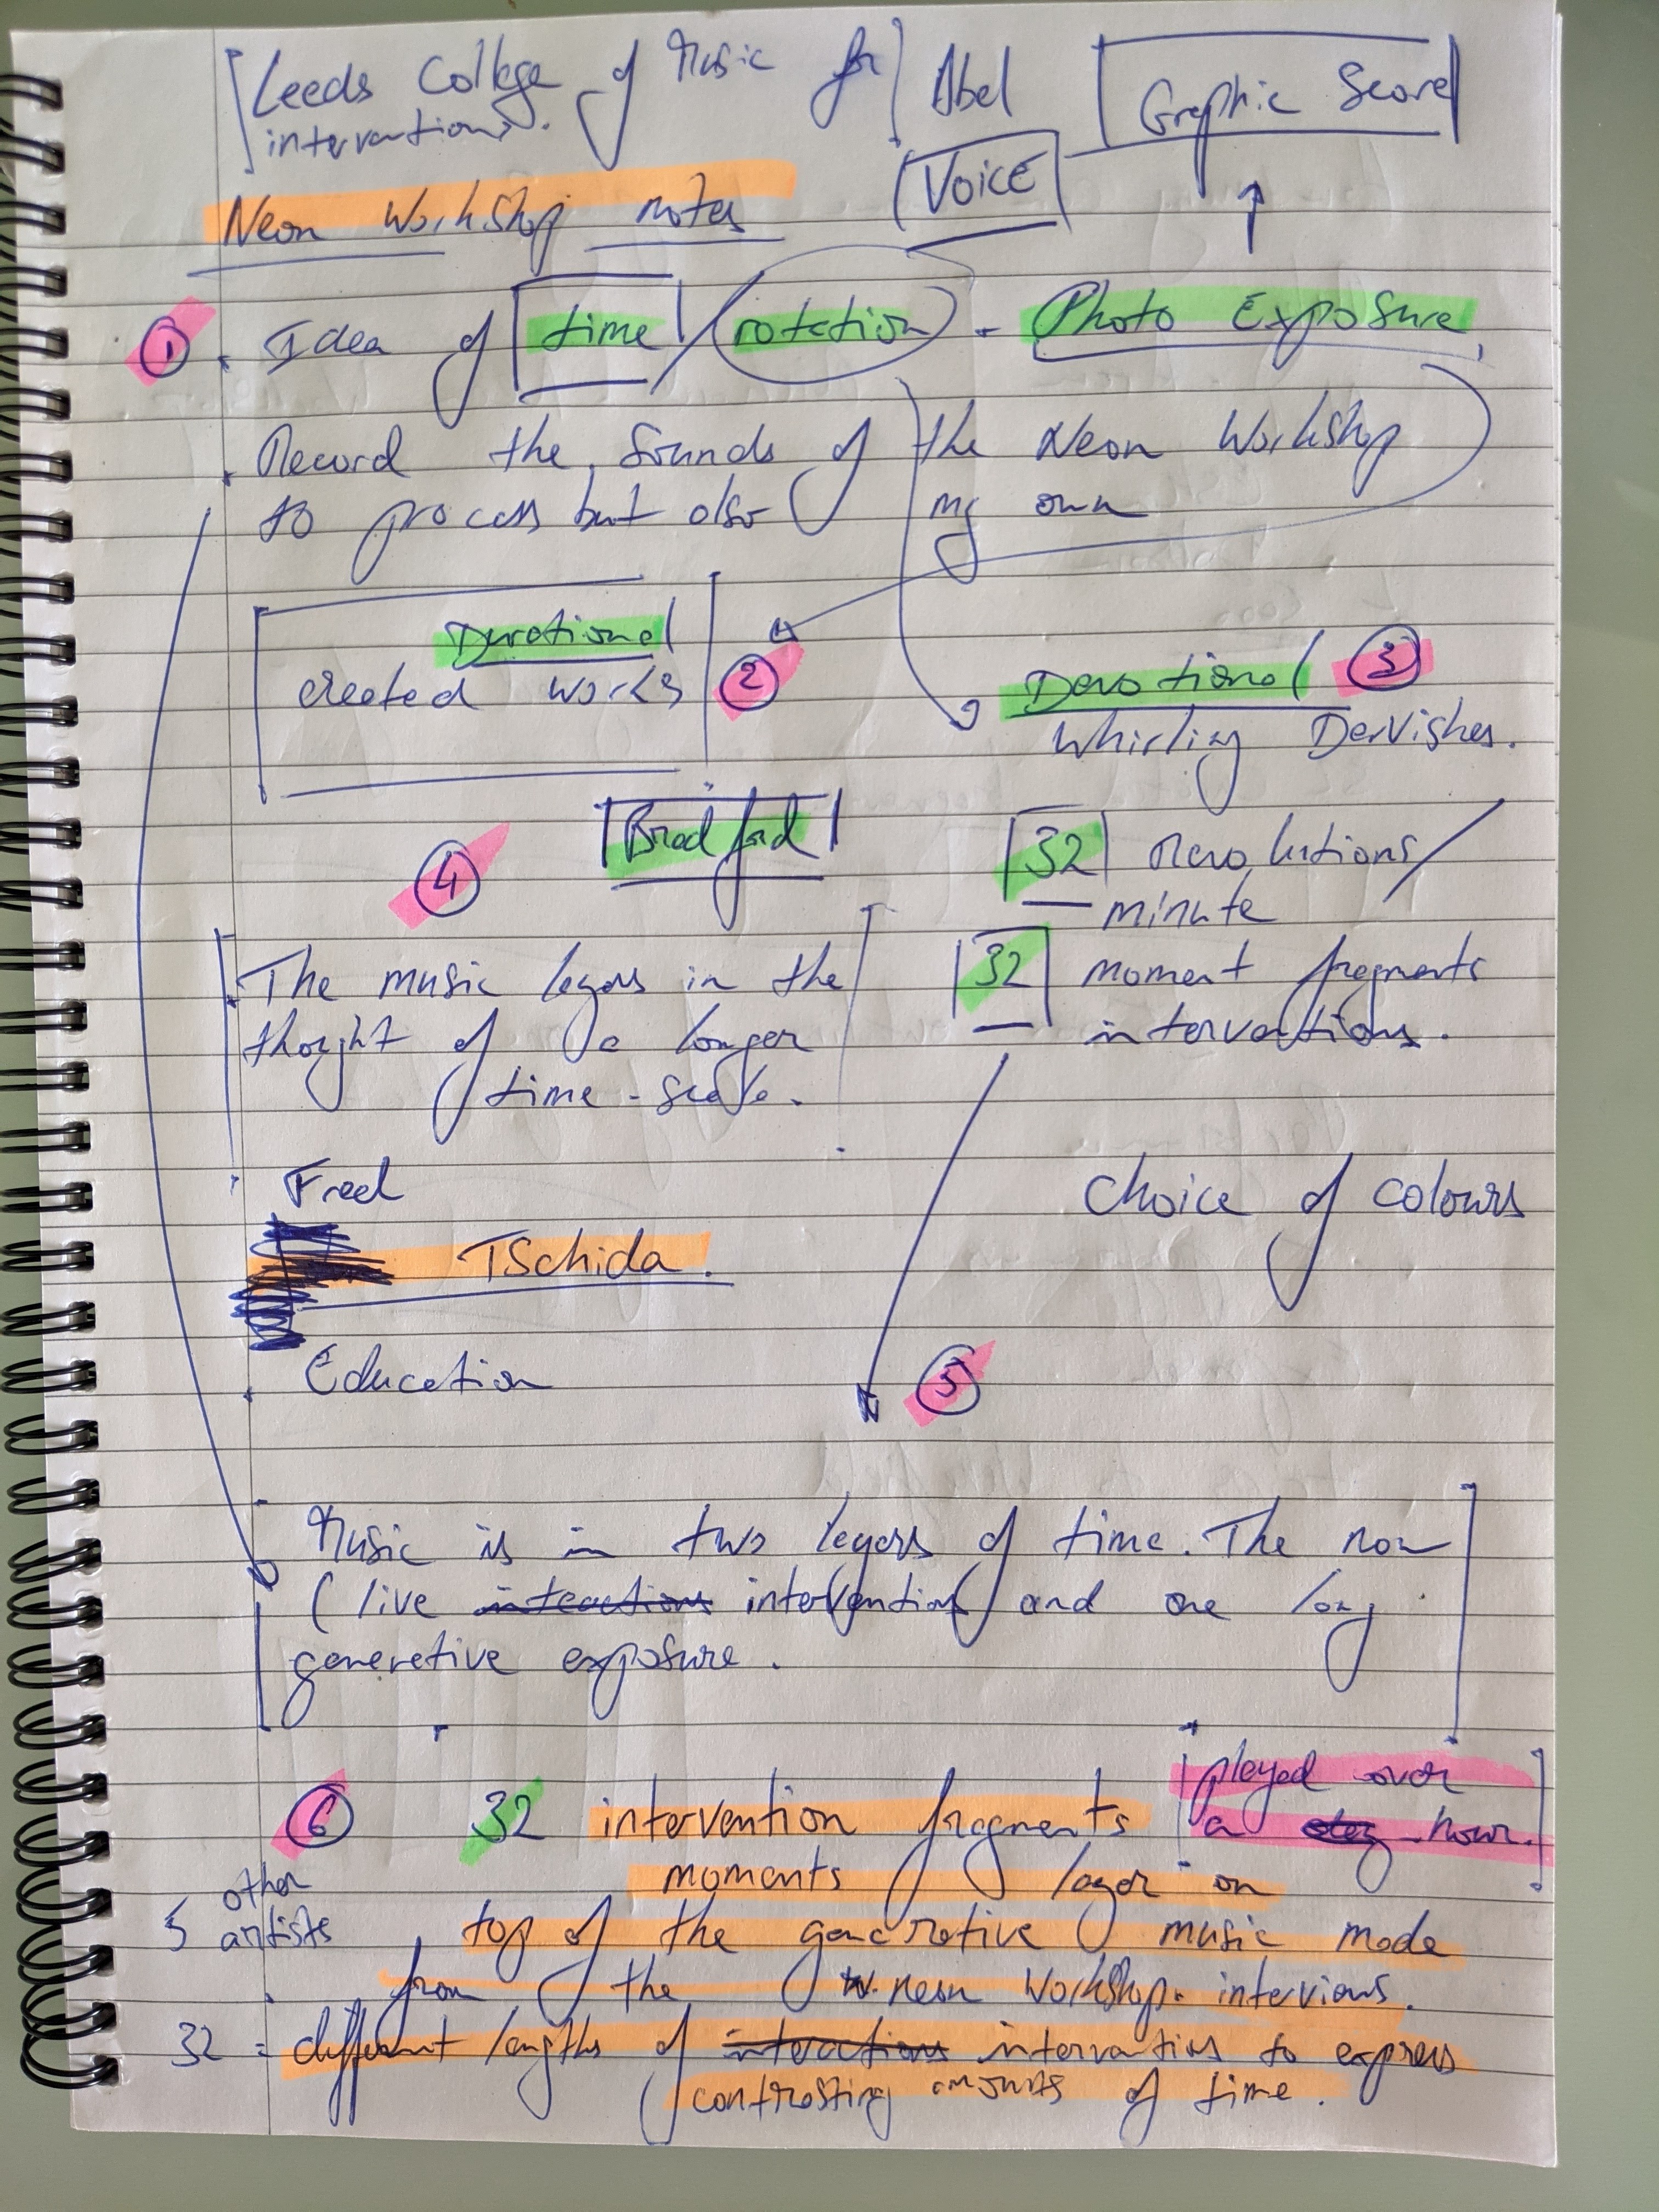 [Leeds College of Music for] Abel [Graphic Score]
interventions.
[Voice]
Neon Workshop notes
① . Idea of [time] / (rotation) - Photo Exposure,
. Record the sounds of the Neon Workshop
to process but also my own
Durational
created works ②
Devotional ③
Whirling Dervishes.
④ [Bradford]
[32] Revolutions/
minute
[32] moment fragments
interventions.
The music layers in the
thought of a longer
time-scale.
Fred
Tschida.
Choice of colours
. Education
⑤
Music is in two layers of time. The now
(live interactions intervention) and one long
generative exposure.
⑥ 32 intervention fragments [played over
a day hour.]
moments layer on
5 other
artists
top of the generative music made
from the W. neon Workshop. interviews.
32 = different lengths of interactions interventions to express
contrasting amounts of time.